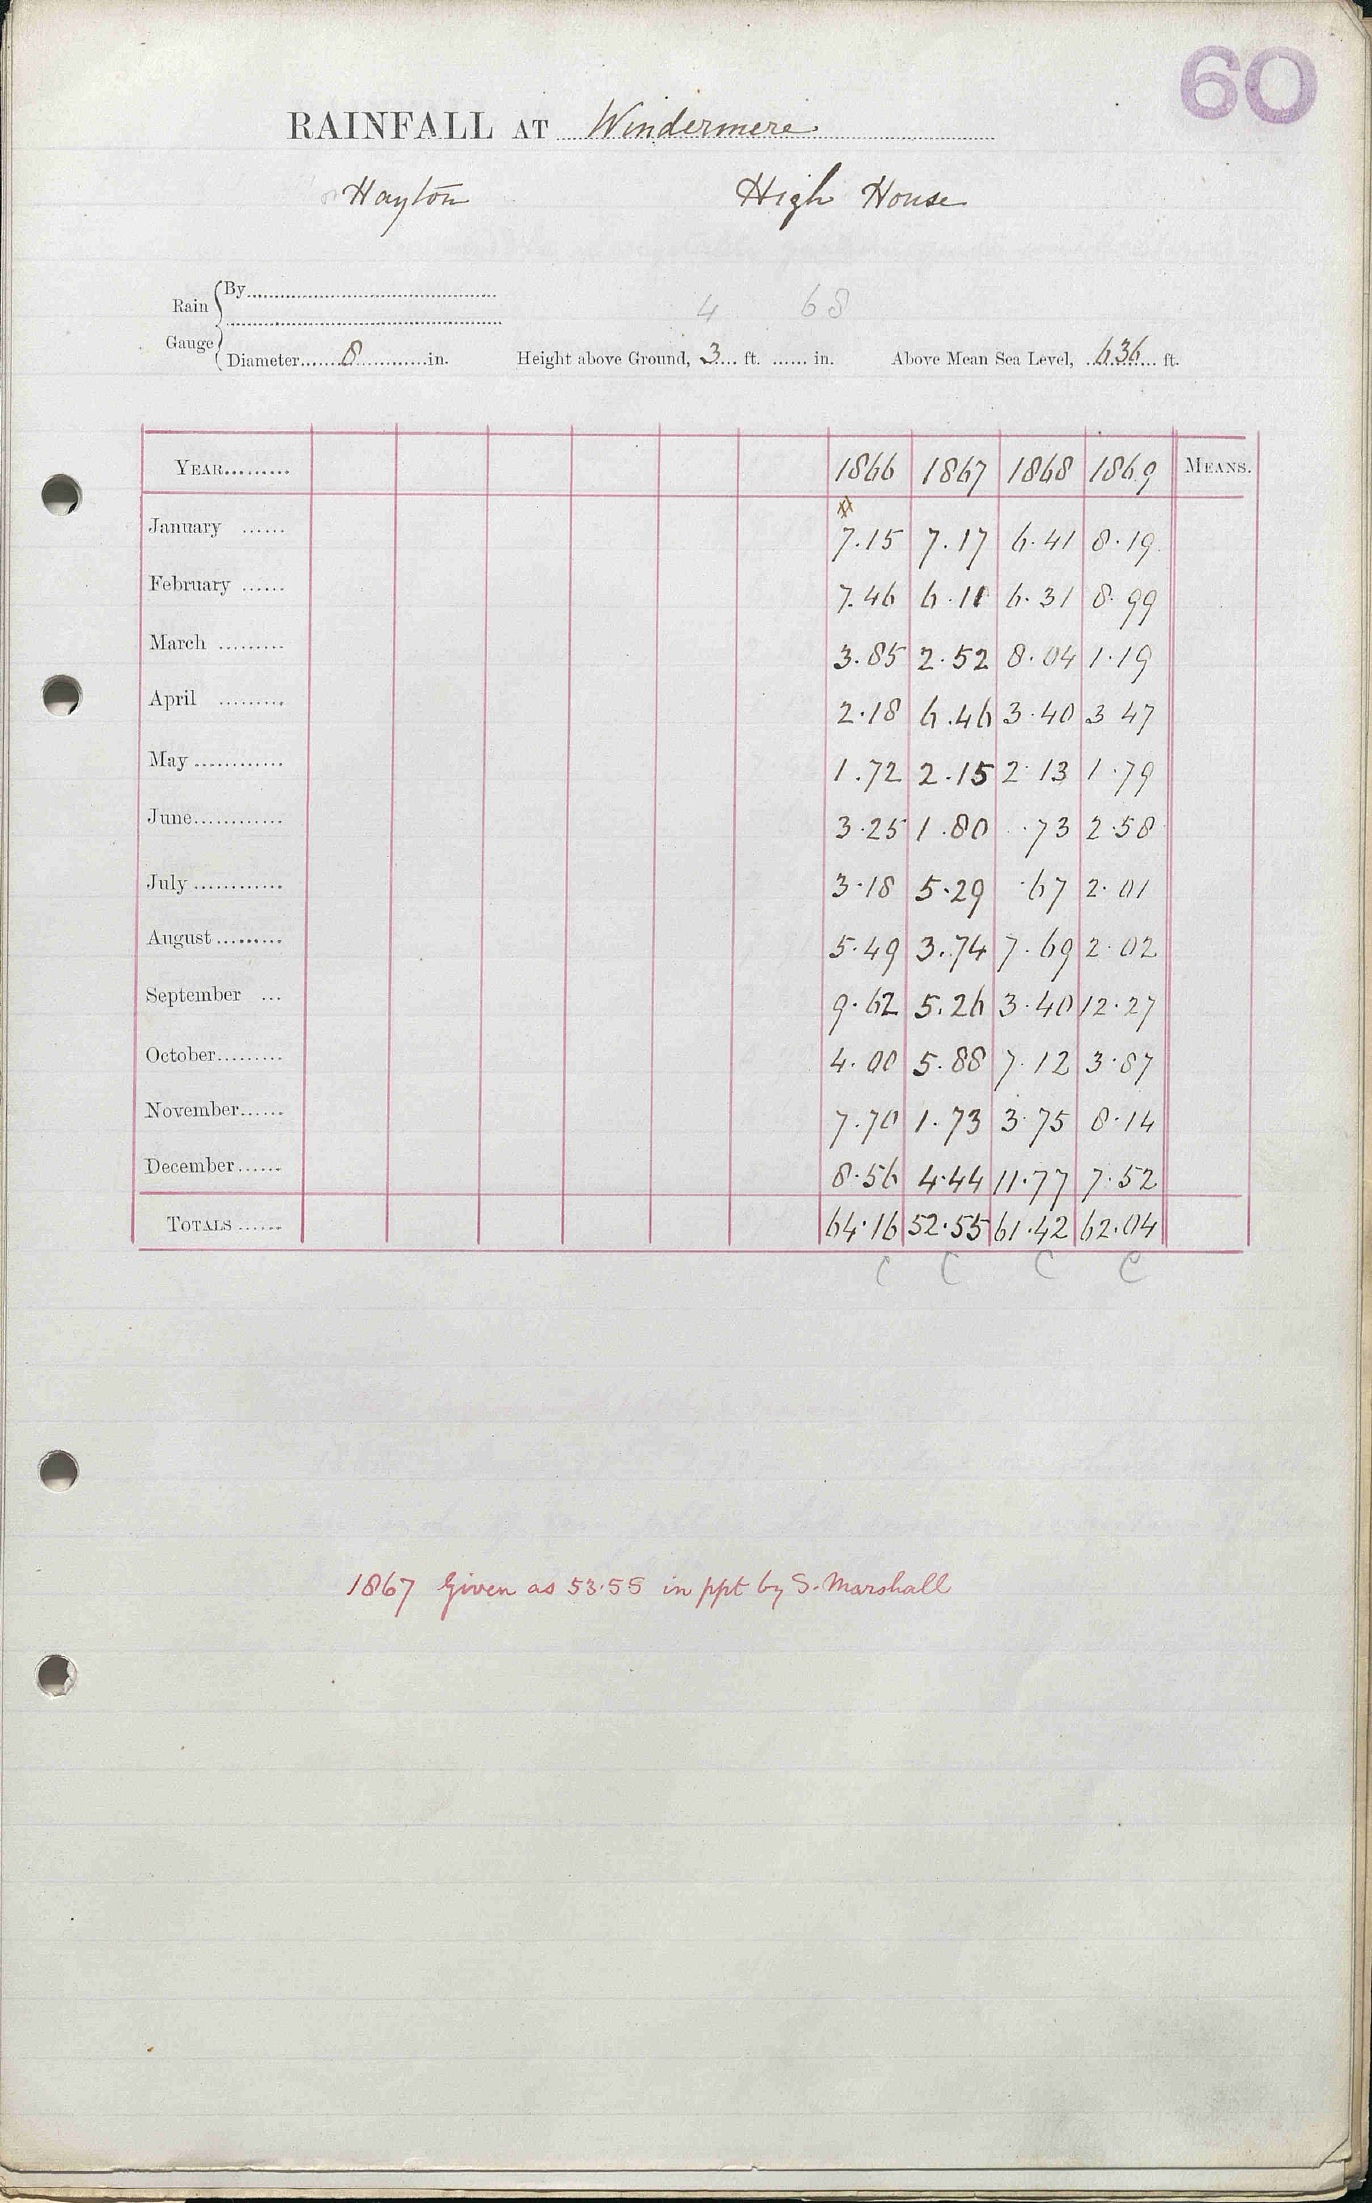 60
RAINFALL AT Windermere
Hayton High House
4 68
Rain Gauge
By
Diameter 8 in. Height above Ground, 3 ft. in. Above Mean Sea Level, 636 ft.
YEAR 1866 1867 1868 1869 MEANS.
January 7.15 7.17 6.41 8.19
February 7.46 6.11 6.31 8.99
March 3.85 2.52 8.04 1.19
April 2.18 6.46 3.40 3 47
May 1.72 2.15 2.13 1.79
June 3.25 1.80 .73 2.58
July 3.18 5.29 .67 2.01
August 5.49 3.74 7.69 2.02
September 9.62 5.26 3.40 12.27
October 4.00 5.88 7.12 3.87
November 7.70 1.73 3.75 8.14
December 8.56 4.44 11.77 7.52
TOTALS 64.16 52.55 61.42 62.04
C C C C
1867 Given as 53.55 in ppt by S. Marshall